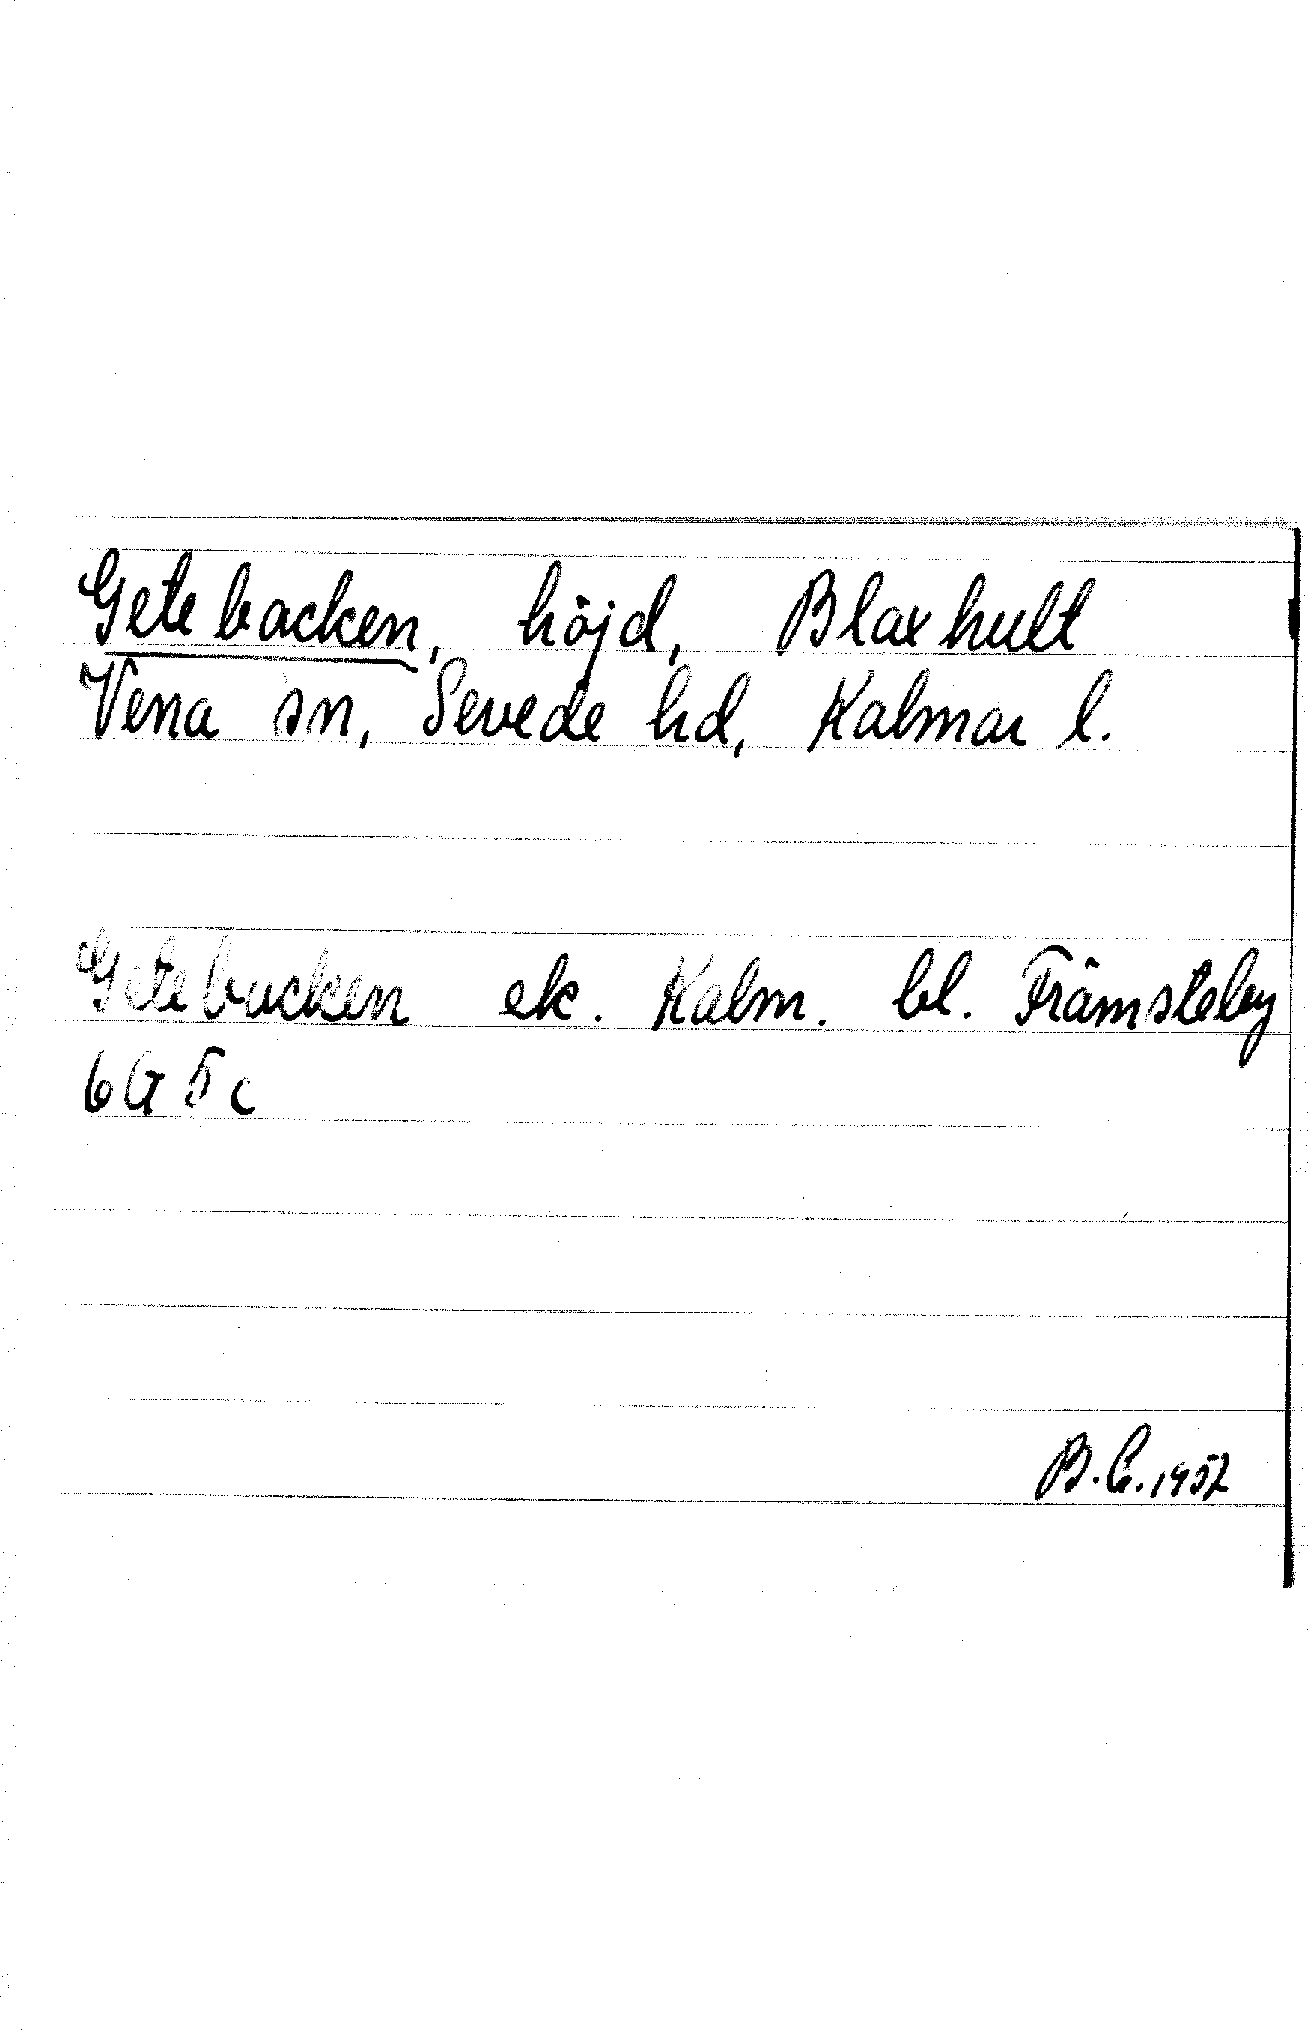 Getebacken, höjd, Blaxhult
Vena sn, Sevede hd, Kalmar l.
Getebacken ek. Kalm. bl. Främsteby
6G 5c
B.C. 1957